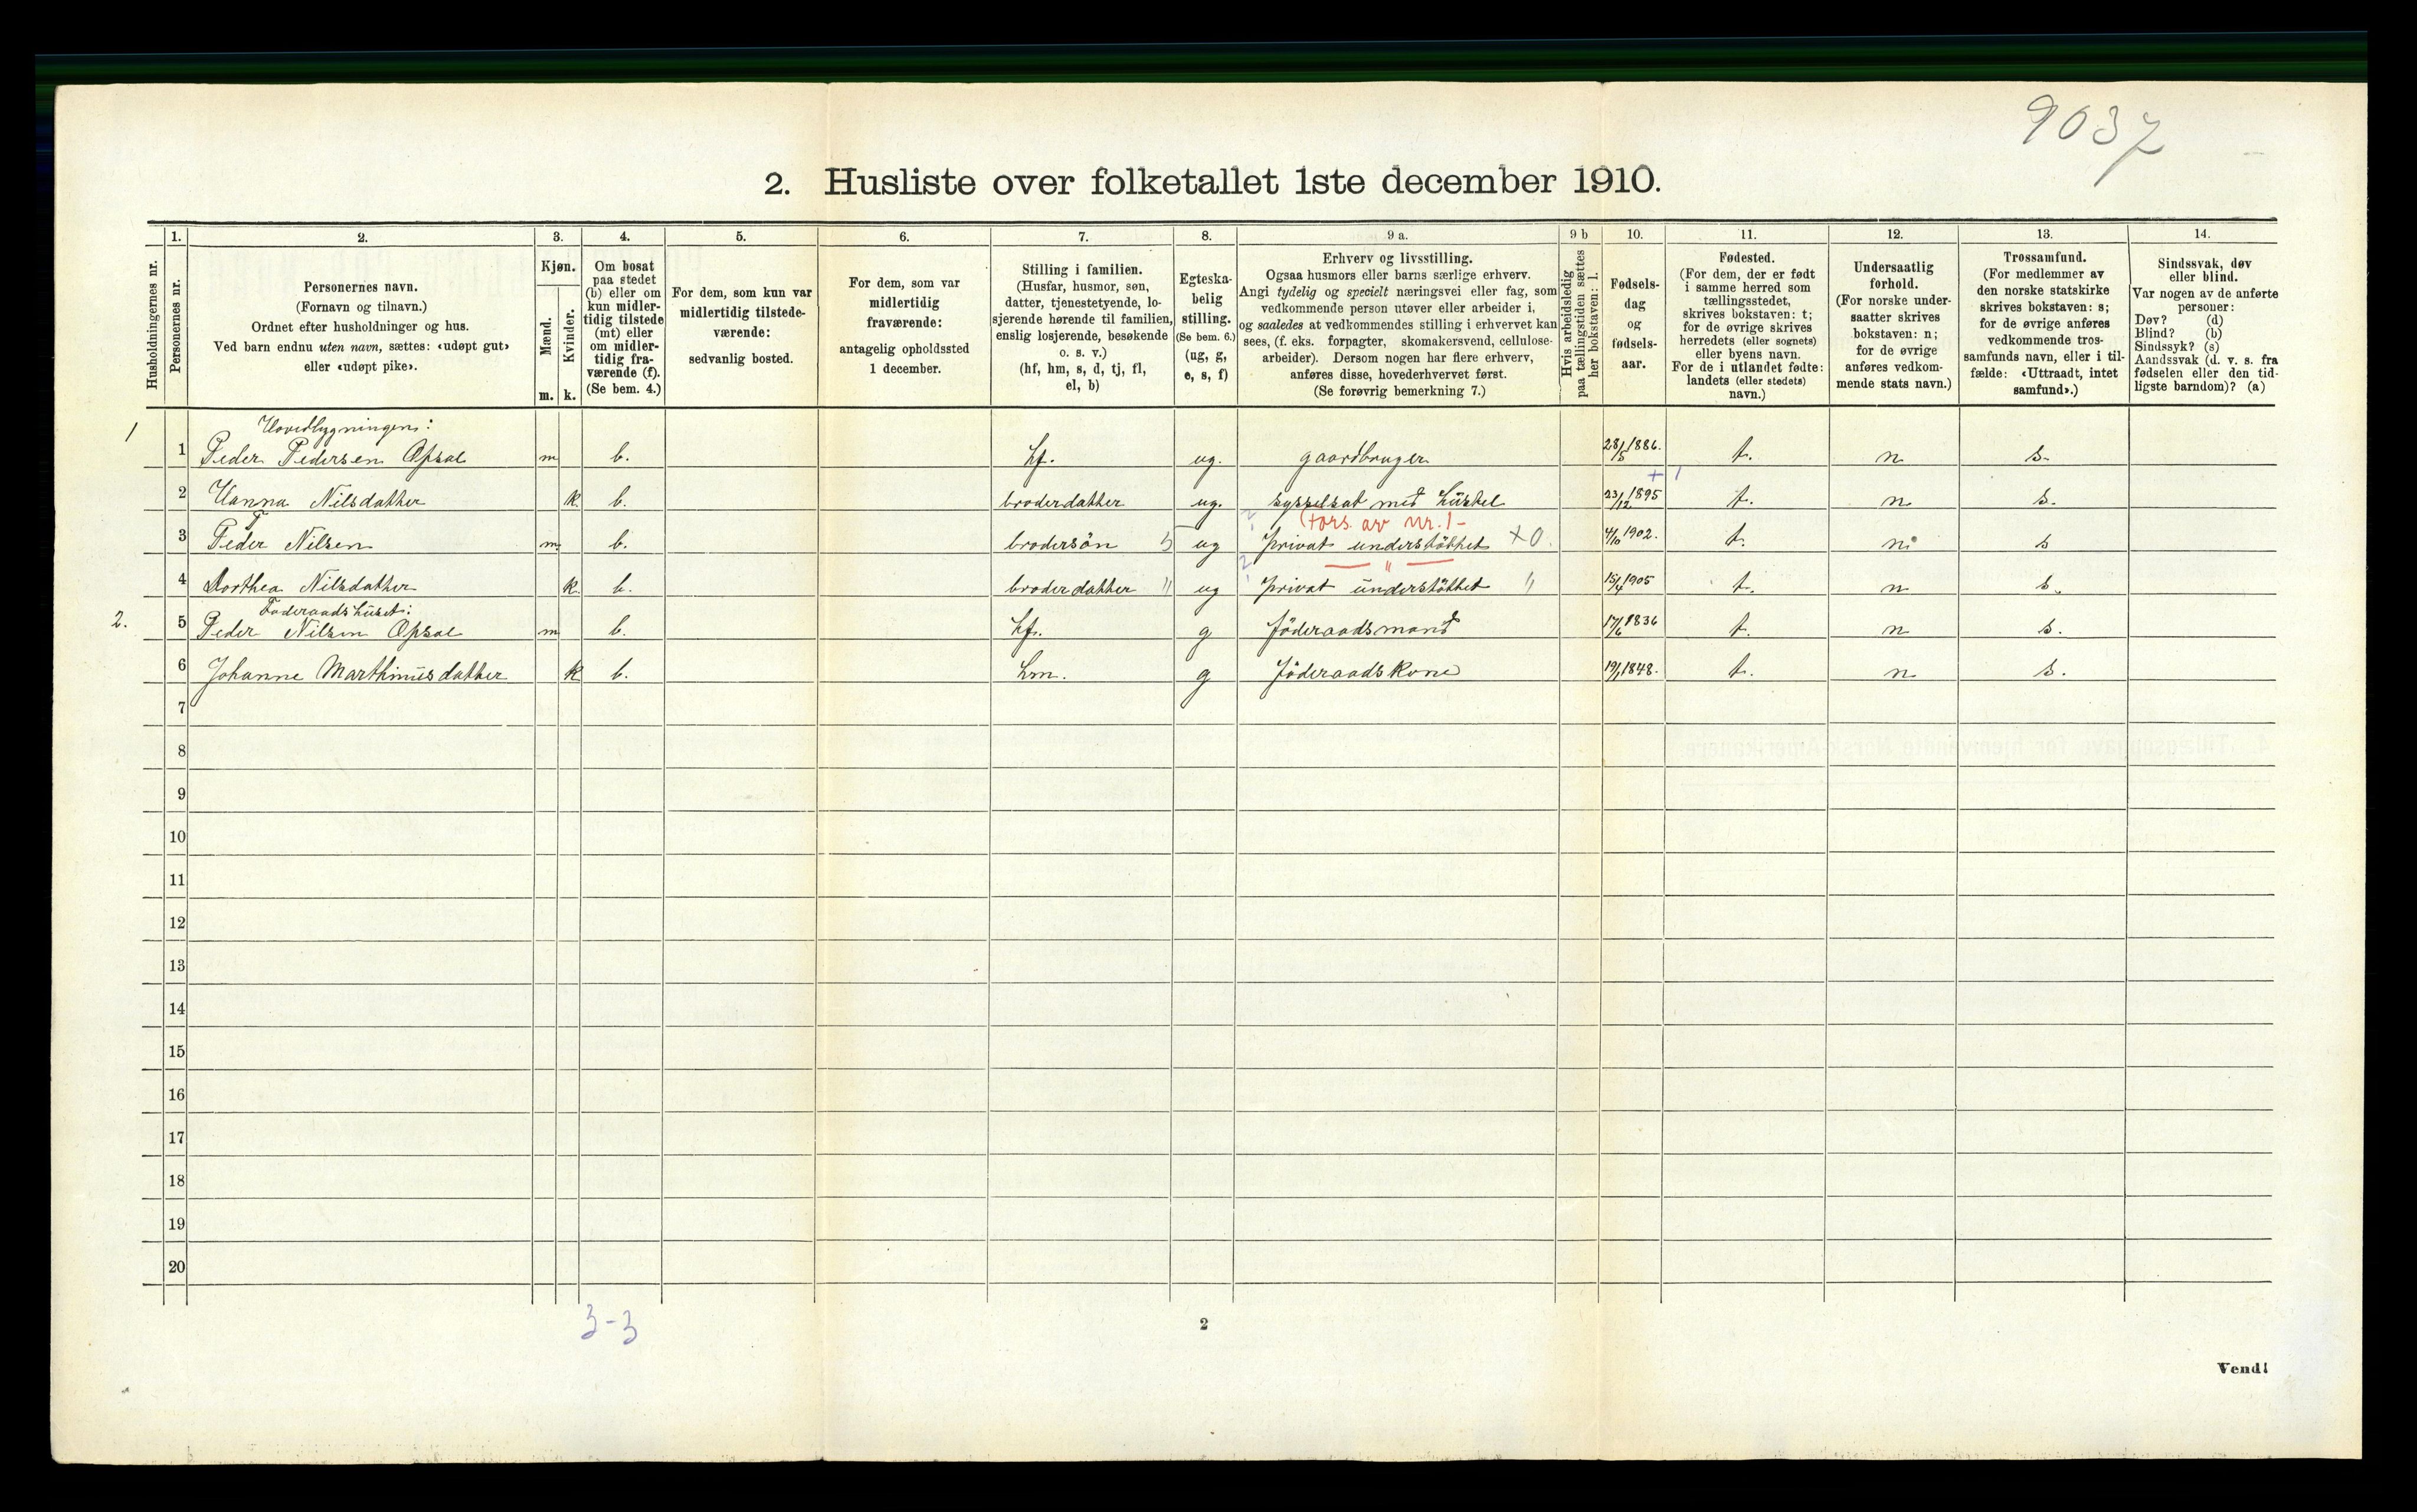 9037
2. Husliste over folketallet 1ste december 1910.
Husholdningernes nr.
1.
Personernes nr.
2.
Personernes navn.
(Fornavn og tilnavn.)
Ordnet efter husholdninger og hus.
Ved barn endnu uten navn, sættes: «udøpt gut»
eller «udøpt pike».
3.
Kjøn.
Mænd.
Kvinder.
m.
k.
4.
Om bosat
paa stedet
(b) eller om
kun midler-
tidig tilstede
(mt) eller
om midler-
tidig fra-
værende (f).
(Se bem. 4.)
5.
For dem, som kun var
midlertidig tilstede-
værende:
sedvanlig bosted.
6.
For dem, som var
midlertidig
fraværende:
antagelig opholdssted
1 december.
7.
Stilling i familien.
(Husfar, husmor, søn,
datter, tjenestetyende, lo-
sjerende hørende til familien,
enslig losjerende, besøkende
o. s. v.)
(hf, hm, s, d, tj, fl,
el, b)
8.
Egteska-
belig
stilling.
(Se bem. 6.)
(ug, g,
e, s, f)
9 a.
Erhverv og livsstilling.
Ogsaa husmors eller barns særlige erhverv.
Angi tydelig og specielt næringsvei eller fag, som
vedkommende person utøver eller arbeider i,
og saaledes at vedkommendes stilling i erhvervet kan
sees, (f. eks. forpagter, skomakersvend, cellulose-
arbeider). Dersom nogen har flere erhverv,
anføres disse, hovederhvervet først.
(Se forøvrig bemerkning 7.)
9 b
Hvis arbeidsledig
paa tællingstiden sættes
her bokstaven: l.
10.
Fødsels-
dag
og
fødsels-
aar.
11.
Fødested.
(For dem, der er født
i samme herred som
tællingsstedet,
skrives bokstaven: t;
for de øvrige skrives
herredets (eller sognets)
eller byens navn.
For de i utlandet fødte:
landets (eller stedets)
navn.)
12.
Undersaatlig
forhold.
(For norske under-
saatter skrives
bokstaven: n;
for de øvrige
anføres vedkom-
mende stats navn.)
13.
Trossamfund.
(For medlemmer av
den norske statskirke
skrives bokstaven: s;
for de øvrige anføres
vedkommende tros-
samfunds navn, eller i til-
fælde: «Uttraadt, intet
samfund».)
14.
Sindssvak, døv
eller blind.
Var nogen av de anførte
personer:
Døv? (d)
Blind? (b)
Sindssyk? (s)
Aandssvak (d. v. s. fra
fødselen eller den tid-
ligste barndom)? (a)
Hovedbygningen:
1 1 Peder Pedersen Opsal m b. hf. ug. gaardbruger 28/5 1886. t. n s.
2 Hanna Nilsdatter k. b. broderdatter ug. sysselsat med hüstel 23/12 1895 t. n s.
(fors. av nr. 1-
3 Peder Nilsen m. b. brodersön 5 ug privat understöttet +0. 4/10 1902. t. n s
— " —
4 Dorthea Nilsdatter k. b. broderdatter " ug privat ünderstöttet " 15/4 1905 t. n s.
Föderaadshüset:
2. 5 Peder Nilsen Opsal m b. hf. g föderaadsmand 17/6 1836 t. n s.
6 Johanne Marthinüsdatter k b. hm. g föderaadskone 19/1 1848. t. n s.
7
8
9
10
11
12
13
14
15
16
17
18
19
20
3-3
2
Vend!